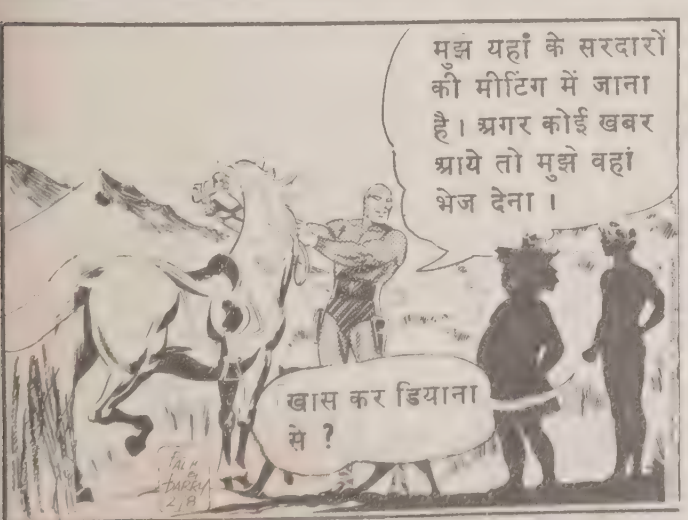 मुझ यहां के सरदारों
की मीटिंग में जाना
है। अगर कोई खबर
आये तो मुझे वहां
भेज देना ।
खास कर डियाना
से ?
FALK
&
BARRY
2,8